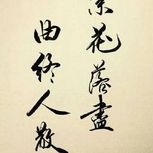 花落盡
曲終人散